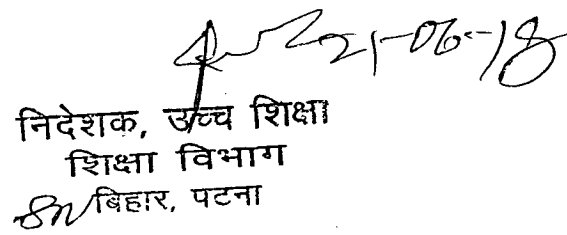 21-06-18
निदेशक, उच्च शिक्षा
शिक्षा विभाग
बिहार, पटना